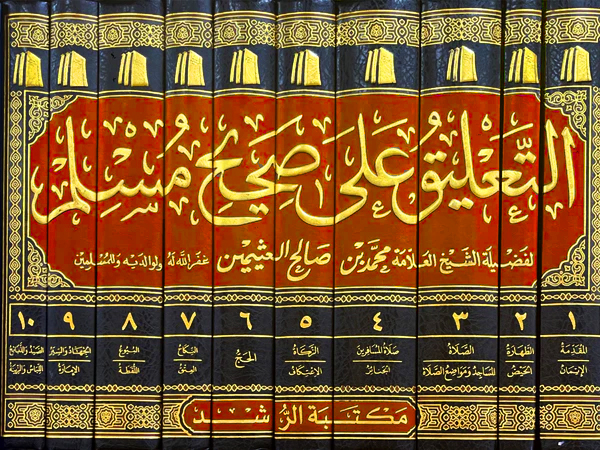 التَّعليق على صحيح مُسلم
لفضيلة الشيخ العلّامة محمّد بن صالح العثيمين غفر الله له ولوالديه وللمسلمين
١ ٢ ٣ ٤ ٥ ٦ ٧ ٨ ٩ ١٠
المقدمة الطهارة الصلاة صلاة المسافرين الزكاة الحج النكاح البيوع الجهاد والسير الصيد والذبائح
الإيمان الحيض المساجد ومواضع الصلاة الجنائز الاعتكاف العتق اللقطة الإمارة اللباس والزينة
مكتبة الرشد